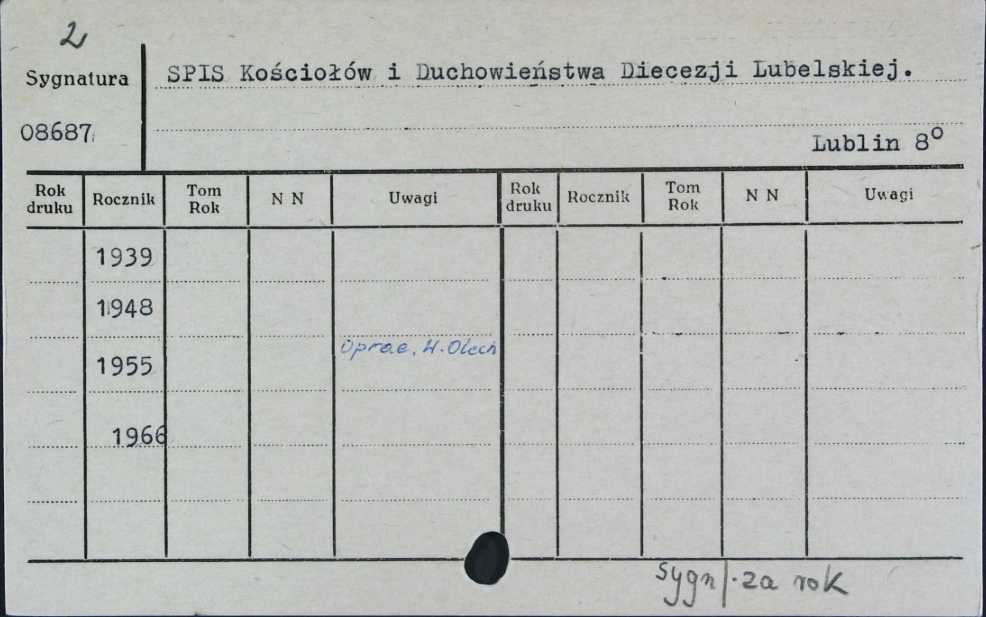 2
Sygnatura
SPIS Kościołów i Duchowieństwa Diecezji Lubelskiej.
08687
Lublin 8°
Rok druku Rocznik Tom Rok N N Uwagi Rok druku Rocznik Tom Rok N N Uwagi
1939
1948
1955 Oprac. W. Olech
1966
sygn/. za rok